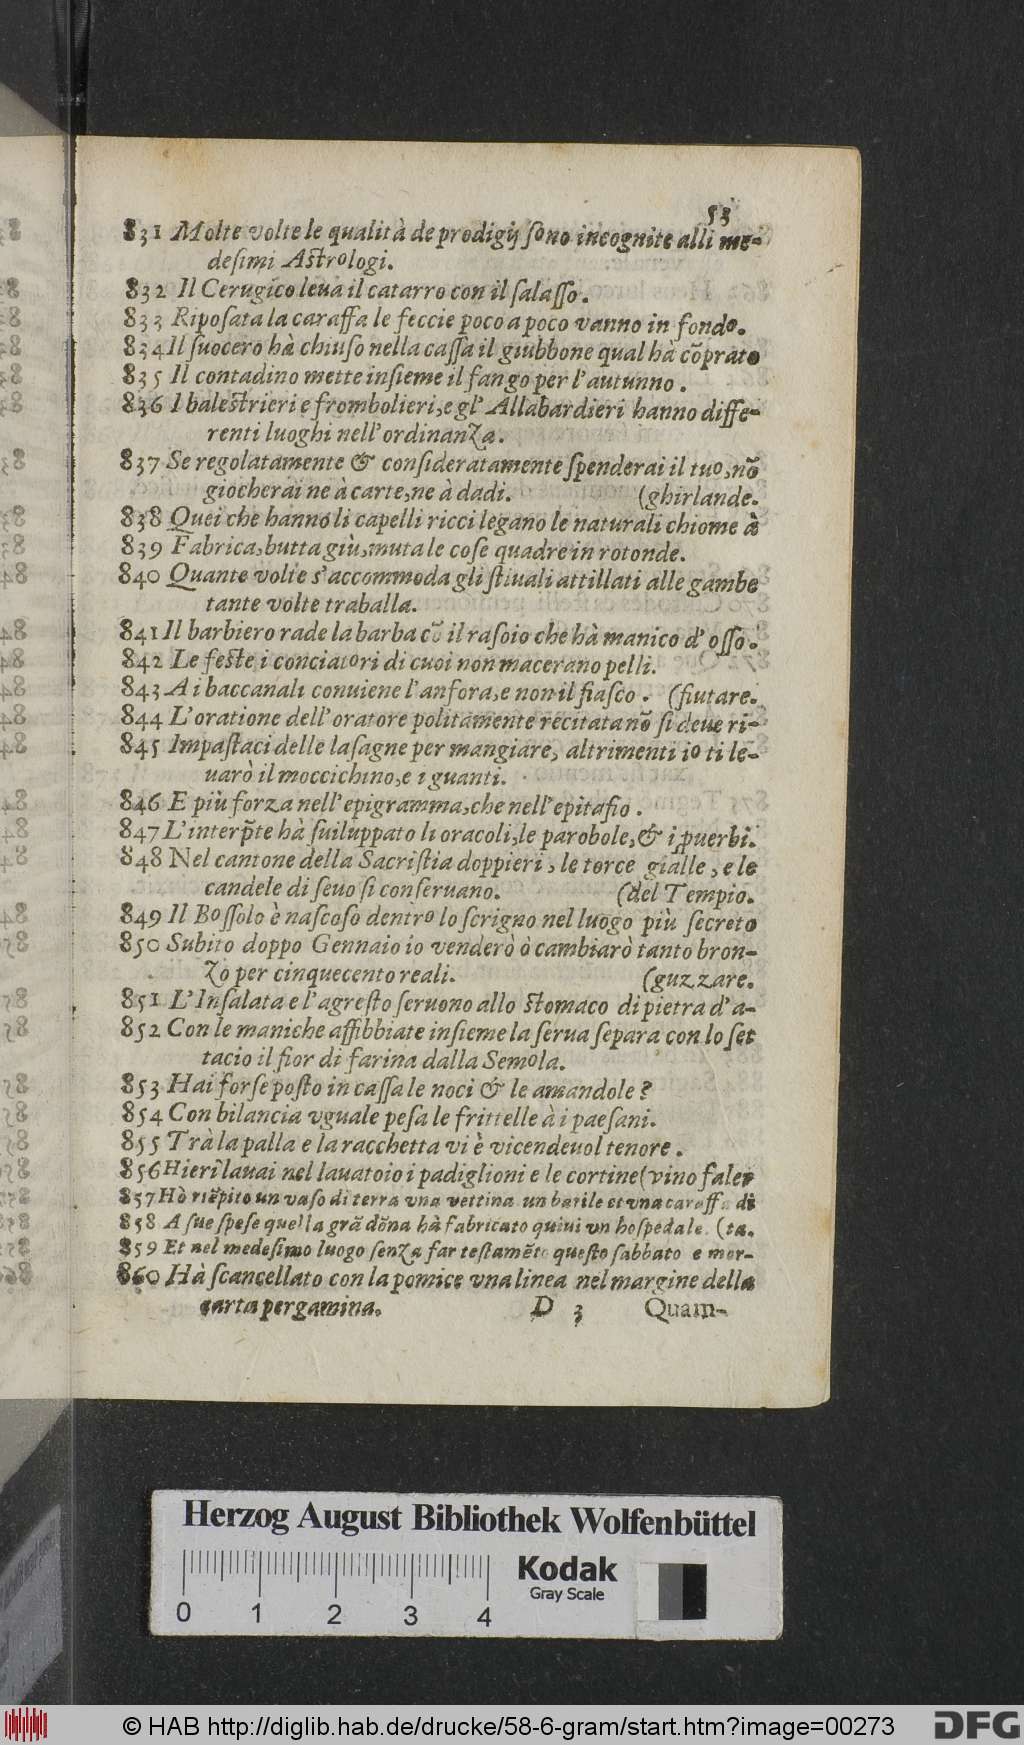 53
831 Molte volte le qualità de prodigij ſono incognite alli me-
deſimi Aſtrologi.
832 Il Cerugico leua il catarro con il ſalaſſo.
833 Ripoſata la caraffa le feccie poco a poco vanno in fondo.
834 Il ſuocero hà chiuſo nella caſſa il giubbone qual hà cõprato
835 Il contadino mette inſieme il fango per l'autunno.
836 I baleſtrieri e frombolieri,e gl' Allabardieri hanno diffe-
renti luoghi nell'ordinanza.
837 Se regolatamente & conſideratamente ſpenderai il tuo,nõ
giocherai ne à carte,ne à dadi. (ghirlande.
838 Quei che hanno li capelli ricci legano le naturali chiome à
839 Fabrica,butta giù,muta le coſe quadre in rotonde.
840 Quante volte s'accommoda gli ſtiuali attillati alle gambe
tante volte traballa.
841 Il barbiero rade la barba cõ il raſoio che hà manico d'oſſo.
842 Le feſte i conciatori di cuoi non macerano pelli.
843 A i baccanali conuiene l'anfora,e non il fiaſco. (fiutare.
844 L'oratione dell'oratore politamente recitata nõ ſi deue ri-
845 Impaſtaci delle laſagne per mangiare, altrimenti io ti le-
uarò il moccichino,e i guanti.
846 E più forza nell'epigramma,che nell'epitafio.
847 L'interp̃te hà ſuiluppato li oracoli,le parobole,& i ꝓuerbi.
848 Nel cantone della Sacriſtia doppieri, le torce gialle, e le
candele di ſeuo ſi conſeruano. (del Tempio.
849 Il Boſſolo è naſcoſo dentro lo ſcrigno nel luogo più ſecreto
850 Subito doppo Gennaio io venderò ò cambiarò tanto bron-
zo per cinquecento reali. (guzzare.
851 L'Inſalata e l'agreſto ſeruono allo ſtomaco di pietra d'a-
852 Con le maniche affibbiate inſieme la ſerua ſepara con lo ſet
tacio il fior di farina dalla Semola.
853 Hai forſe poſto in caſſa le noci & le amandole?
854 Con bilancia vguale peſa le frittelle à i paeſani.
855 Trà la palla e la racchetta vi è vicendeuol tenore.
856 Hieri lauai nel lauatoio i padiglioni e le cortine (vino faler
857 Hò riẽpito un vaſo di terra vna vettina un barile et vna caraffa di
858 A ſue ſpeſe quella grã dõna hà fabricato quiui vn hoſpedale. (ta.
859 Et nel medeſimo luogo ſenza far teſtamẽto queſto ſabbato e mor-
860 Hà ſcancellato con la pomice vna linea nel margine della
carta pergamina. D 3 Quam-
Herzog August Bibliothek Wolfenbüttel
Kodak
Gray Scale
0 1 2 3 4
© HAB http://diglib.hab.de/drucke/58-6-gram/start.htm?image=00273
DFG